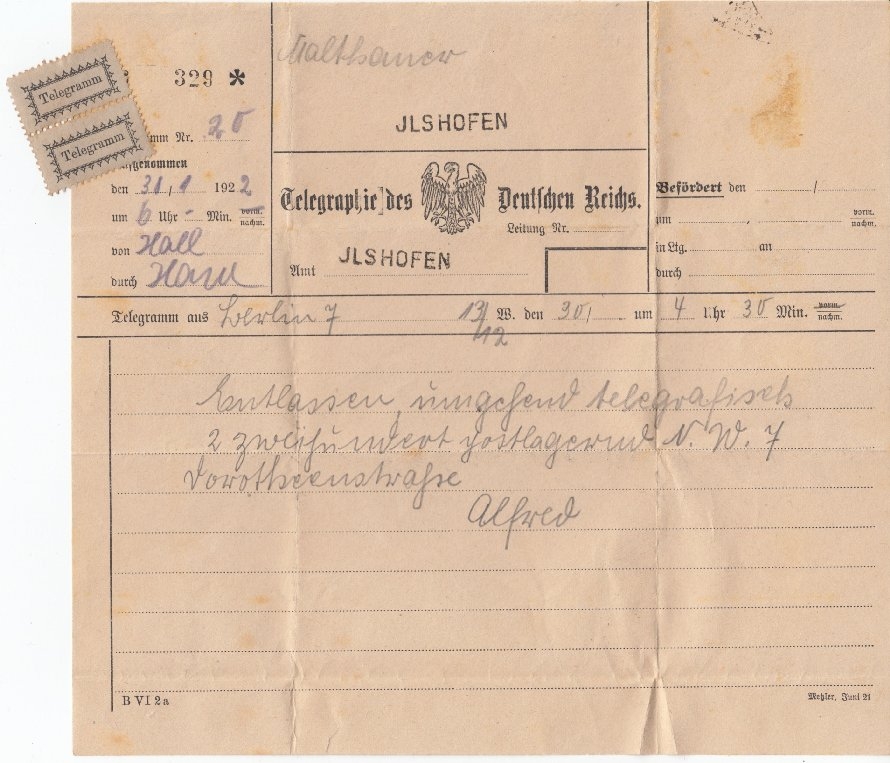 Telegramm
Telegramm
329 *
mm Nr. 20
fgenommen
den 31/1 1922
um 6 Uhr - Min. vorm. nachm.
von Hall
durch
Malthaner
JLSHOFEN
Telegraphie des Deutschen Reichs.
Leitung Nr.
Amt JLSHOFEN
Befördert den /
um , vorm. nachm.
in Ltg. an
durch
Telegramm aus Berlin 7 13/12 W. den 30, um 4 Uhr 30 Min. vorm. nachm.
Entlassen, umgehend telegrafisch
2 zweihundert postlagernd N. W. 7
Dorotheenstrahse
Alfred
B VI 2a
Metzler, Juni 21